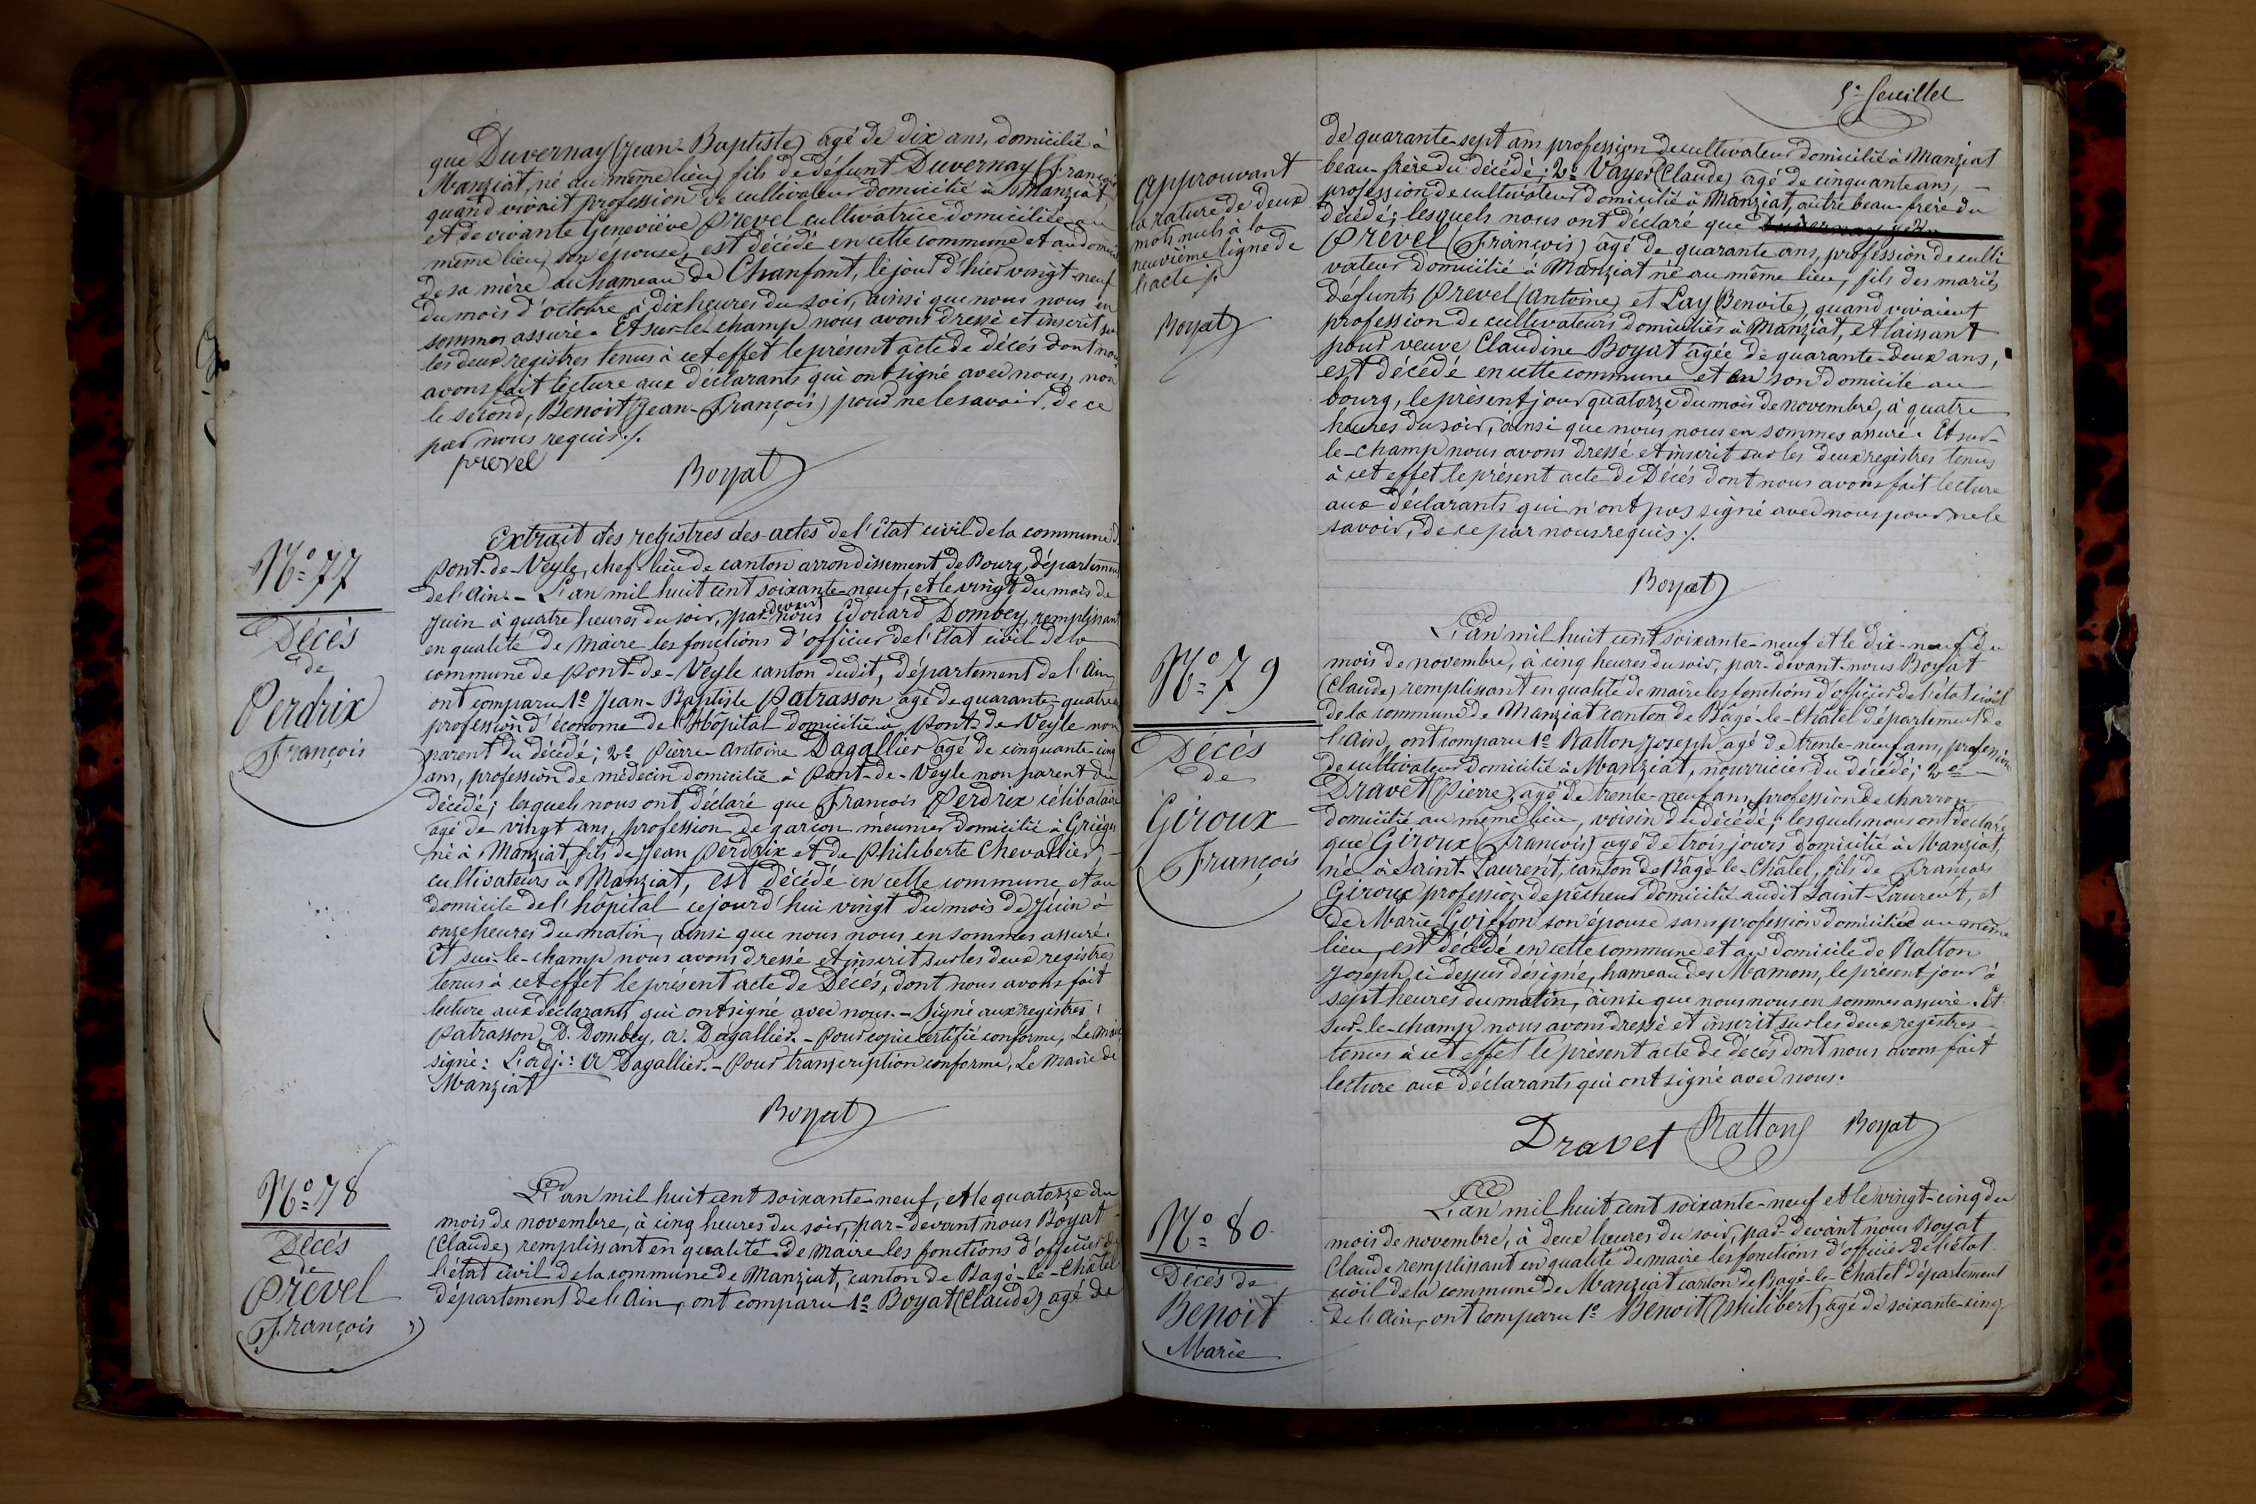 que Duvernay (Jean-Baptiste) âgé de dix ans, domicilié à
Manziat, né au même lieu, fils de défunt Duvernay (François
quand vivait profession de cultivateur domicilié à Manziat,
et de vivante Geneviève Prevel cultivatrice domiciliée au
même lieu, son épouse, est décédé en cette commune et au domicile
de sa mère au hameau de Chanfant, le jour d'hier vingt-neuf
du mois d'octobre à dix heures du soir, ainsi que nous nous en
sommes assuré. Et sur-le-champ nous avons dressé et inscrit sur
les deux registres tenus à cet effet le présent acte de décès dont nous
avons fait lecture aux déclarants qui ont signé avec nous, non
le second, Benoit (Jean-François) pour ne le savoir, de ce
par nous requis ./.
prevel Boyat
N° 77
Décès
de
Perdrix
François
Extrait des registres des actes de l'Etat civil de la commune de
Pont-de-Veyle, chef-lieu de canton arrondissement de Bourg, département
de l'Ain. - L'an mil huit cent soixante-neuf, et le vingt du mois de
Juin à quatre heures du soir, par devant nous Edouard Dombey, remplissant
en qualité de Maire les fonctions d'officier de l'Etat civil de la
commune de Pont-de-Veyle canton dudit, département de l'Ain,
ont comparu 1° Jean-Baptiste Patrasson âgé de quarante-quatre ans
profession d'économe de l'hôpital domicilié à Pont-de-Veyle non
parent du décédé; 2° Pierre Antoine Dagallier âgé de cinquante-cinq
ans, profession de médecin domicilié à Pont-de-Veyle non parent du
décédé; lesquels nous ont déclaré que François Perdrix célibataire
âgé de vingt ans, profession de garçon meunier domicilié à Grièges
né à Manziat, fils de Jean Perdrix et de Philiberte Chevallier,
cultivateurs à Manziat, est décédé en cette commune et au
domicile de l'hôpital cejourd'hui vingt du mois de Juin à
onze heures du matin, ainsi que nous nous en sommes assuré.
Et sur-le-champ nous avons dressé et inscrit sur les deux registres
tenus à cet effet le présent acte de Décès, dont nous avons fait
lecture aux déclarants qui ont signé avec nous. - Signé aux registres:
Patrasson, D. Dombey, A. Dagallier. - Pour copie certifié conforme, Le Maire
signé: L'adj.: A Dagallier. - Pour transcription conforme, Le Maire de
Manziat
Boyat
N° 78
Décès
de
Prevel
François
L'an mil huit cent soixante-neuf, et le quatorze du
mois de novembre, à cinq heures du soir, par-devant nous Boyat
(Claude) remplissant en qualité de maire les fonctions d'officier de
l'état civil de la commune de Manziat, canton de Bagé-le-Châtel
département de l'Ain, ont comparu 1° Boyat (Claude) âgé de
5e feuillet
de quarante-sept ans profession de cultivateur domicilié à Manziat
beau-frère du décédé; 2° Vayer (Claude) âgé de cinquante ans,
profession de cultivateur domicilié à Manziat, autre beau-frère du
décédé; lesquels nous ont déclaré que
Prevel (François) âgé de quarante ans, profession de culti
vateur domicilié à Manziat né au même lieu, fils des mariés
défunts Prevel (Antoine) et Lay (Benoite), quand vivaient
profession de cultivateurs domiciliés à Manziat, et laissant
pour veuve Claudine Boyat âgée de quarante-deux ans,
est décédé en cette commune et en son domicile au
bourg, le présent jour quatorze du mois de novembre, à quatre
heures du soir, ainsi que nous nous en sommes assuré. Et sur-
le-champ nous avons dressé et inscrit sur les deux registres tenus
à cet effet le présent acte de Décès dont nous avons fait lecture
aux déclarants qui n'ont pas signé avec nous pour ne le
savoir, de ce par nous requis ./.
Boyat
Approuvant
la rature de deux
mots nuls à la
neuvième ligne de
l'acte ./.
Boyat
N° 79
Décès
de
Giroux
François
L'an mil huit cent soixante-neuf et le dix-neuf du
mois de novembre, à cinq heures du soir, par-devant nous Boyat
(Claude) remplissant en qualité de maire les fonctions d'officier de l'état civil
de la commune de Manziat canton de Bâgé-le-Châtel département de
l'Ain, ont comparu 1° Ratton Joseph âgé de trente-neuf ans, profession
de cultivateur domicilié à Manziat, nourricier du décédé; 2°
Dravet (Pierre) âgé de trente-neuf ans profession de charron
domicilié au même lieu, voisin du décédé; lesquels nous ont déclaré
que Giroux (François) âgé de trois jours domicilié à Manziat,
né à Saint-Laurent, canton de Bâgé-le-Châtel, fils de François
Giroux profession de pêcheur domicilié audit Saint-Laurent, et
de Marie Goiffon son épouse sans profession domiciliée au même
lieu, est décédé en cette commune et au domicile de Ratton
Joseph, ci-dessus désigné, hameau des Mamons, le présent jour à
sept heures du matin, ainsi que nous nous en sommes assuré. Et
sur-le-champ nous avons dressé et inscrit sur les deux registres
tenus à cet effet le présent acte de décès dont nous avons fait
lecture aux déclarants qui ont signé avec nous.
Dravet Ratton J Boyat
N° 80
Décès de
Benoit
Marie
L'an mil huit cent soixante-neuf et le vingt-cinq du
mois de novembre, à deux heures du soir, par-devant nous Boyat
Claude remplissant en qualité de maire les fonctions d'officier de l'état
civil de la commune de Manziat canton de Bagé-le-Châtel département
de l'Ain, ont comparu 1° Benoit (Philibert) âgé de soixante-cinq